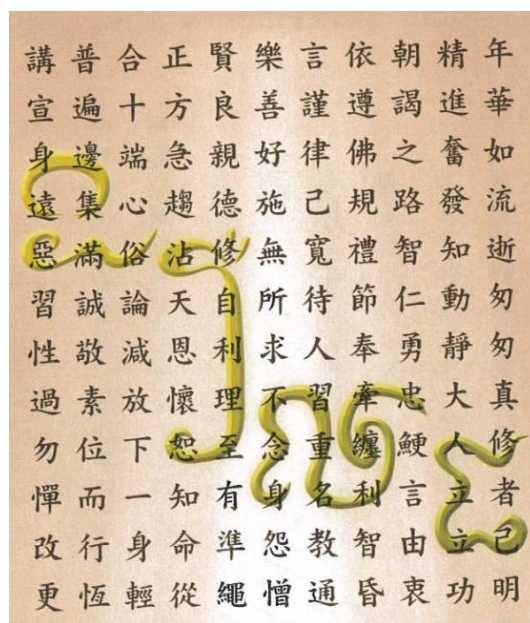 年華如流逝匆匆真修者己明
精進奮發知動靜大人立立功
朝謁之路智仁勇忠鯁言由衷
依遵佛規禮節奉牽纏利智昏
言謹律己寬待人習重名教通
樂善好施無所求不念身怨憎
賢良親德修自利理至有準繩
正方急趨沾天恩懷恕知命從
合十端心俗論減放下一身輕
普遍邊集滿誠敬素位而行恆
講宣身遠惡習性過勿憚改更